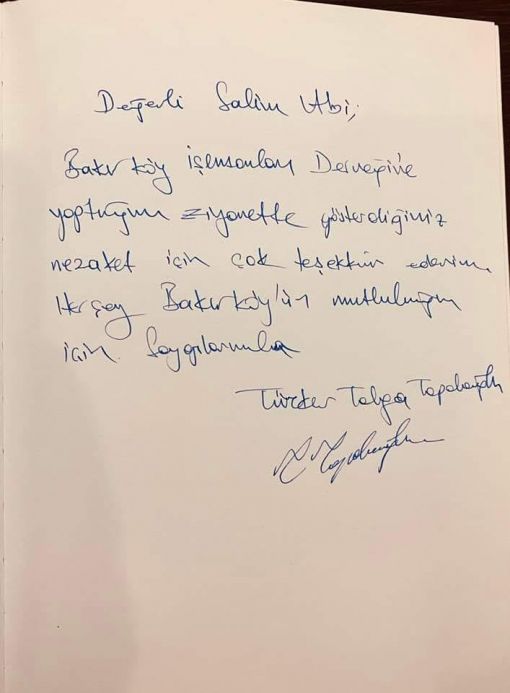 Değerli Salim Abi,
Bakırköy işinsanları Derneği'ne
yaptığım ziyarette gösterdiğiniz
nezaket için çok teşekkür ederim.
Herşey Bakırköy'ün mutluluğu
için. Saygılarımla
Türker Tolga